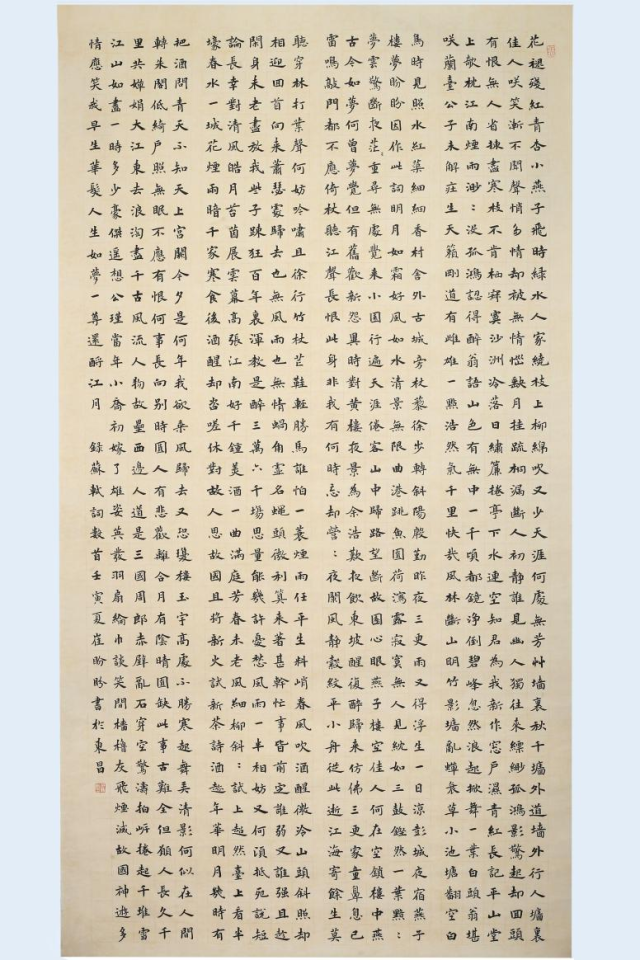 花褪殘紅青杏小燕子飛時綠水人家繞枝上柳綿吹又少天涯何處無芳艸墻裏秋千墻外道墻外行人墻裏
佳人咲笑漸不聞聲悄多情却被無情惱缺月挂疏桐漏斷人初靜誰見幽人獨往来縹緲孤鴻影驚起却回頭
有恨無人省揀盡寒枝不肯栖寂寞沙洲冷落日繡簾捲亭下水連空知君為我新作窓戶濕青紅長記平山堂
上欹枕江南煙雨渺：沒孤鴻認得醉翁語山色有無中一千頃都鏡浄倒碧峰忽然浪起掀舞一葉白頭翁堪
咲蘭臺公子未解莊生天籟剛道有雌雄一點浩然氣千里快哉風林斷山明竹影墻亂蟬衰草小池塘翻空白
鳥時見照水紅蕖細細香村舍外古城旁杖藜徐步轉斜陽殷勤昨夜三更雨又得浮生一日涼彭城夜宿燕子
樓夢盼盼因作此詞明月如霜好風如水清景無限曲港跳魚圓荷瀉露寂寞無人見紞如三鼓鏗然一葉黯：
夢雲驚斷夜茫：重尋無處覺来小園行遍天涯倦客山中歸路望斷故園心眼燕子樓空佳人何在空鎖樓中燕
古今如夢何曾夢覺但有舊歡新怨異時對黃樓夜景為余浩歎夜飲東坡醒復醉歸来仿佛三更家童鼻息已
雷鳴敲門都不應倚杖聽江聲長恨此身非我有何時忘却營：夜闌風靜縠紋平小舟從此逝江海寄餘生莫
聽穿林打葉聲何妨吟嘯且徐行竹杖芒鞋輕勝馬誰怕一蓑煙雨任平生料峭春風吹酒醒微冷山頭斜照却
相迎回首向来蕭瑟處歸去也無風雨也無情蝸角虛名蠅頭微利算来著甚幹忙事皆前定誰弱又誰強且趁
閑身未老盡放我些子疎狂百年裏渾教是醉三萬六千場思量能幾許憂愁風雨一半相妨又何須抵死說短
論長幸對清風皓月苔茵展雲幕高張江南好千鍾美酒一曲滿庭芳春未老風細柳斜：試上超然臺上看半
壕春水一城花煙雨暗千家寒食後酒醒却咨嗟休對故人思故國且將新火試新茶詩酒趁年華明月幾時有
把酒問青天不知天上宮闕今夕是何年我欲乘風歸去又恐瓊樓玉宇高處不勝寒起舞弄清影何似在人間
轉朱閣低綺戶照無眠不應有恨何事長向別時圓人有悲歡離合月有陰晴圓缺此事古難全但願人長久千
里共嬋娟大江東去浪淘盡千古風流人物故壘西邊人道是三國周郎赤壁亂石穿空驚濤拍岸捲起千堆雪
江山如畫一時多少豪傑遥想公瑾當年小喬初嫁了雄姿英發羽扇綸巾談笑間檣櫓灰飛煙滅故國神遊多
情應笑我早生華髮人生如夢一尊還酹江月 錄蘇軾詞數首壬寅夏崔盼盼書於東昌